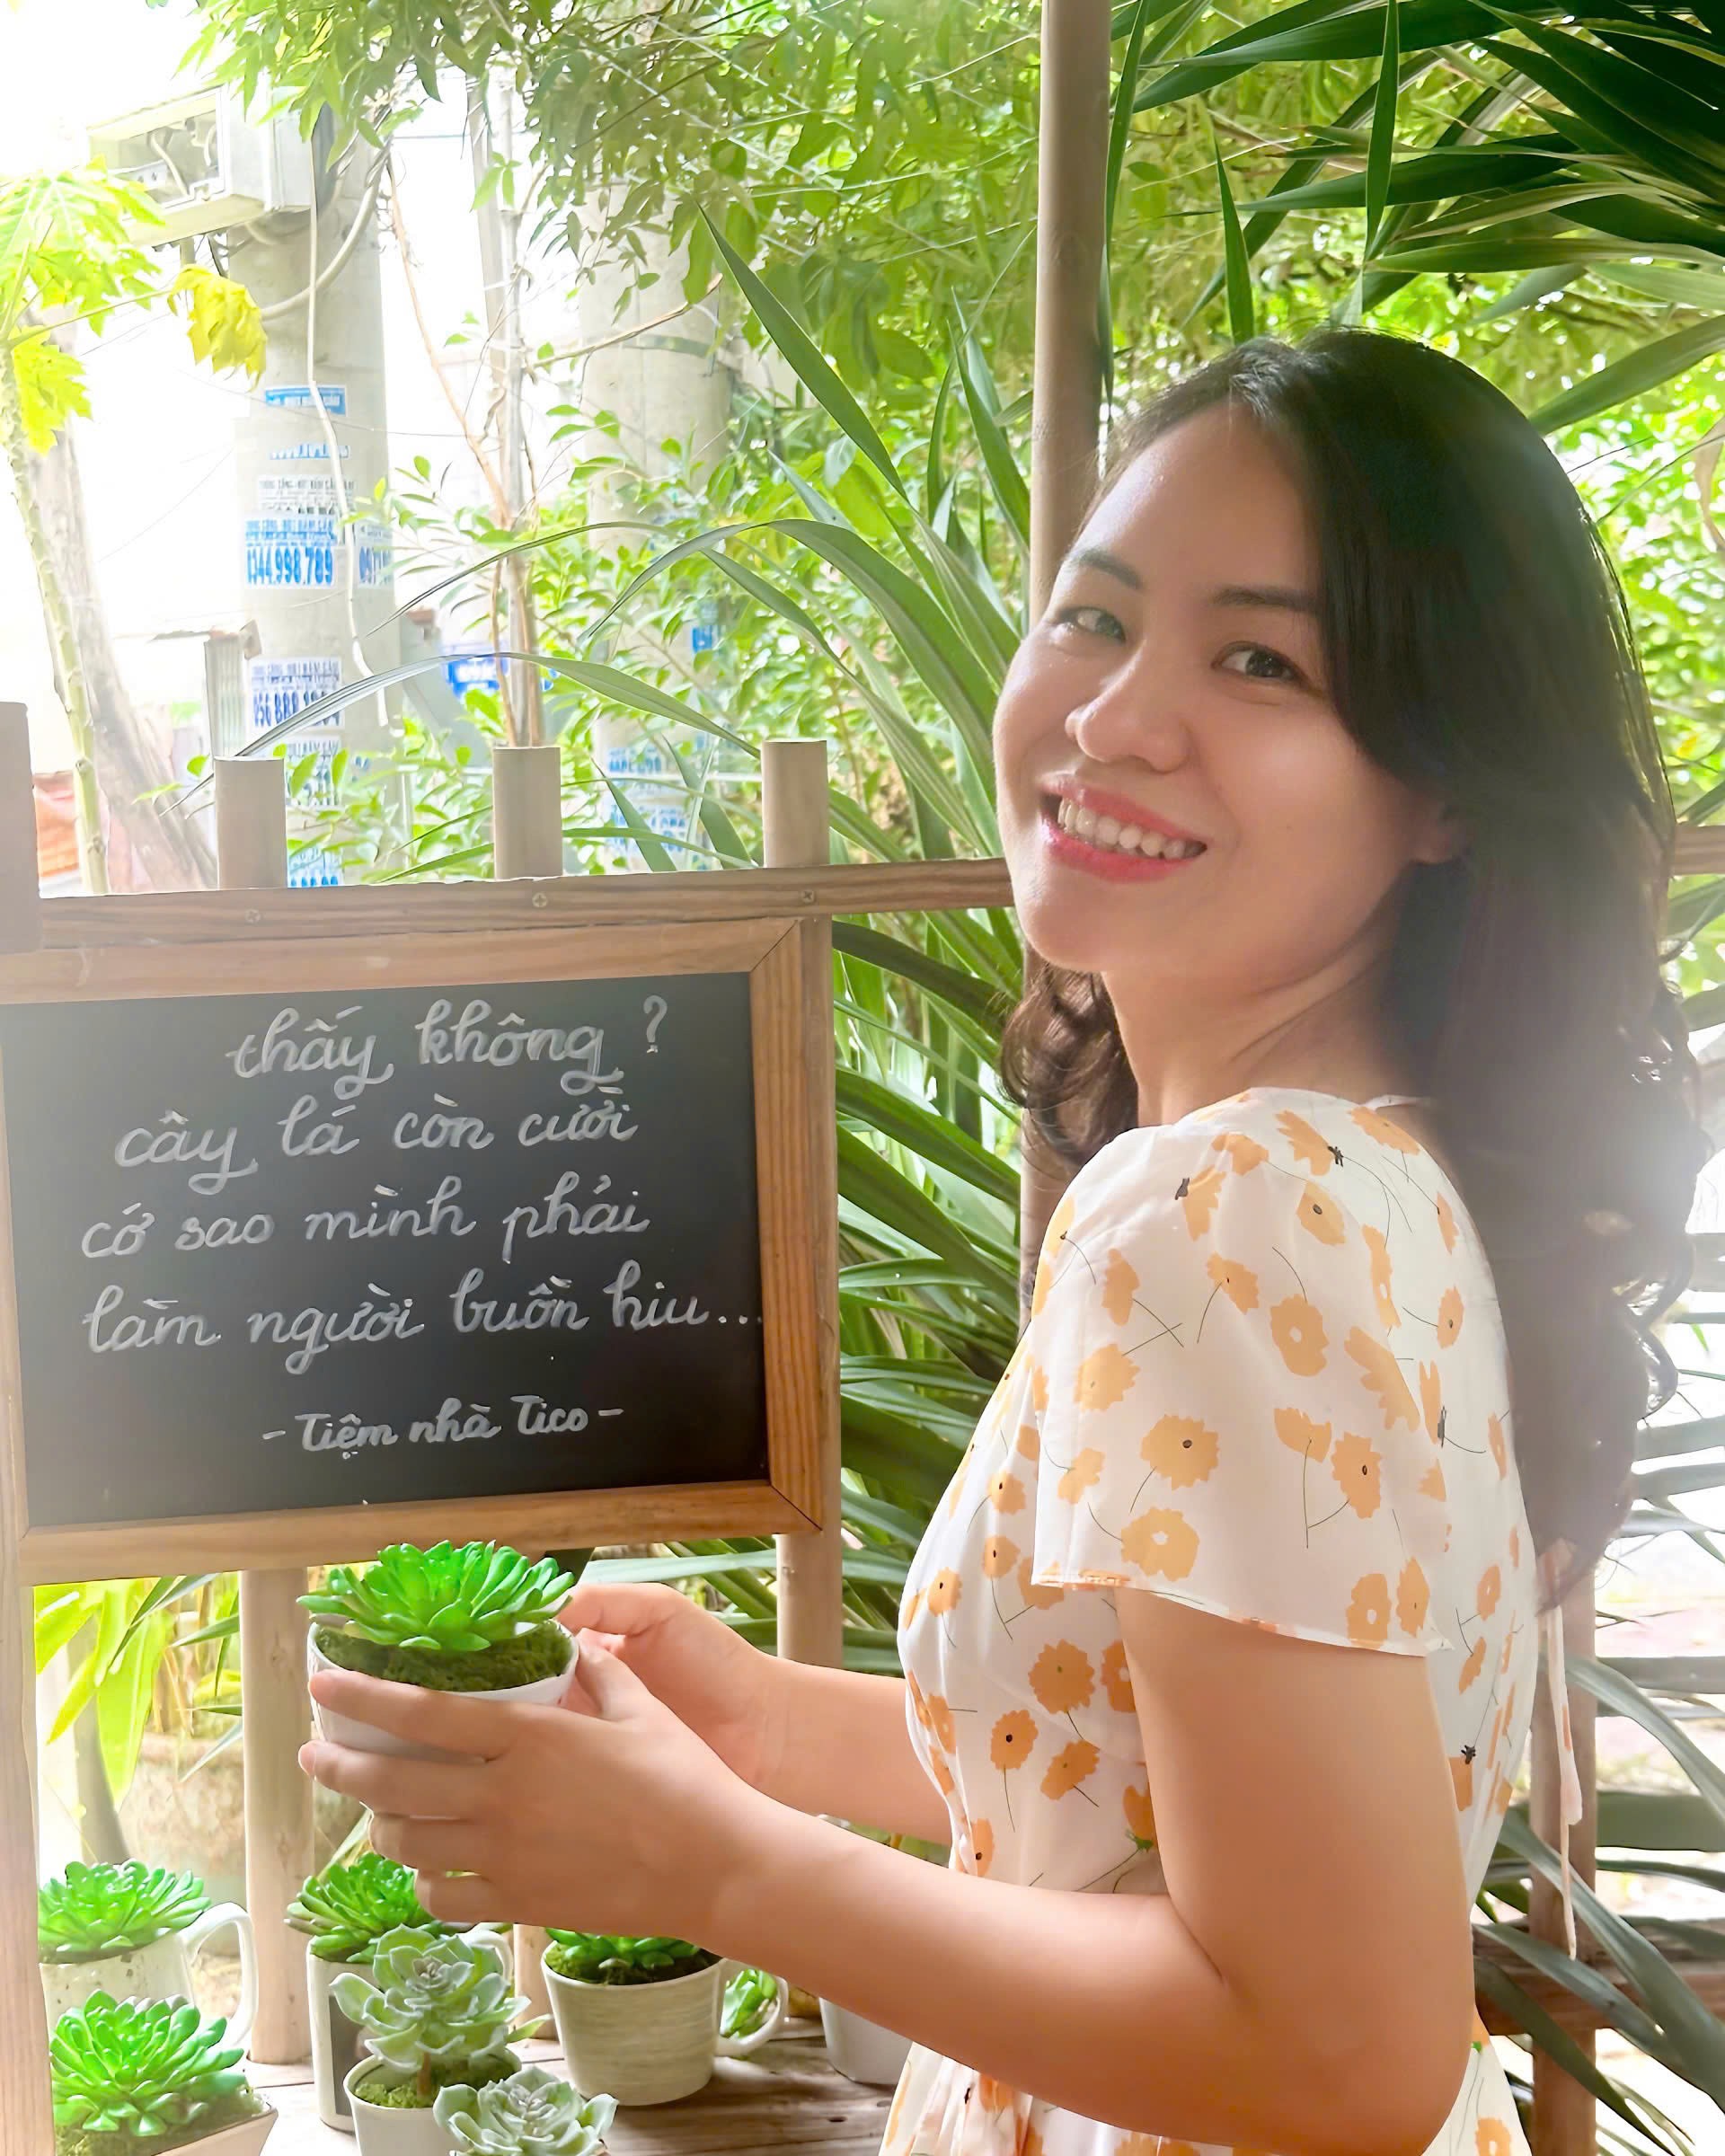 1344.998.789
thấy không ?
cây lá còn cười
cớ sao mình phải
làm người buồn hiu...
- Tiệm nhà Tico -